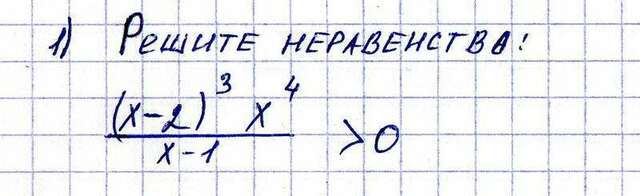 1) Решите неравенство:
(x-2)³ x⁴
x-1
>0